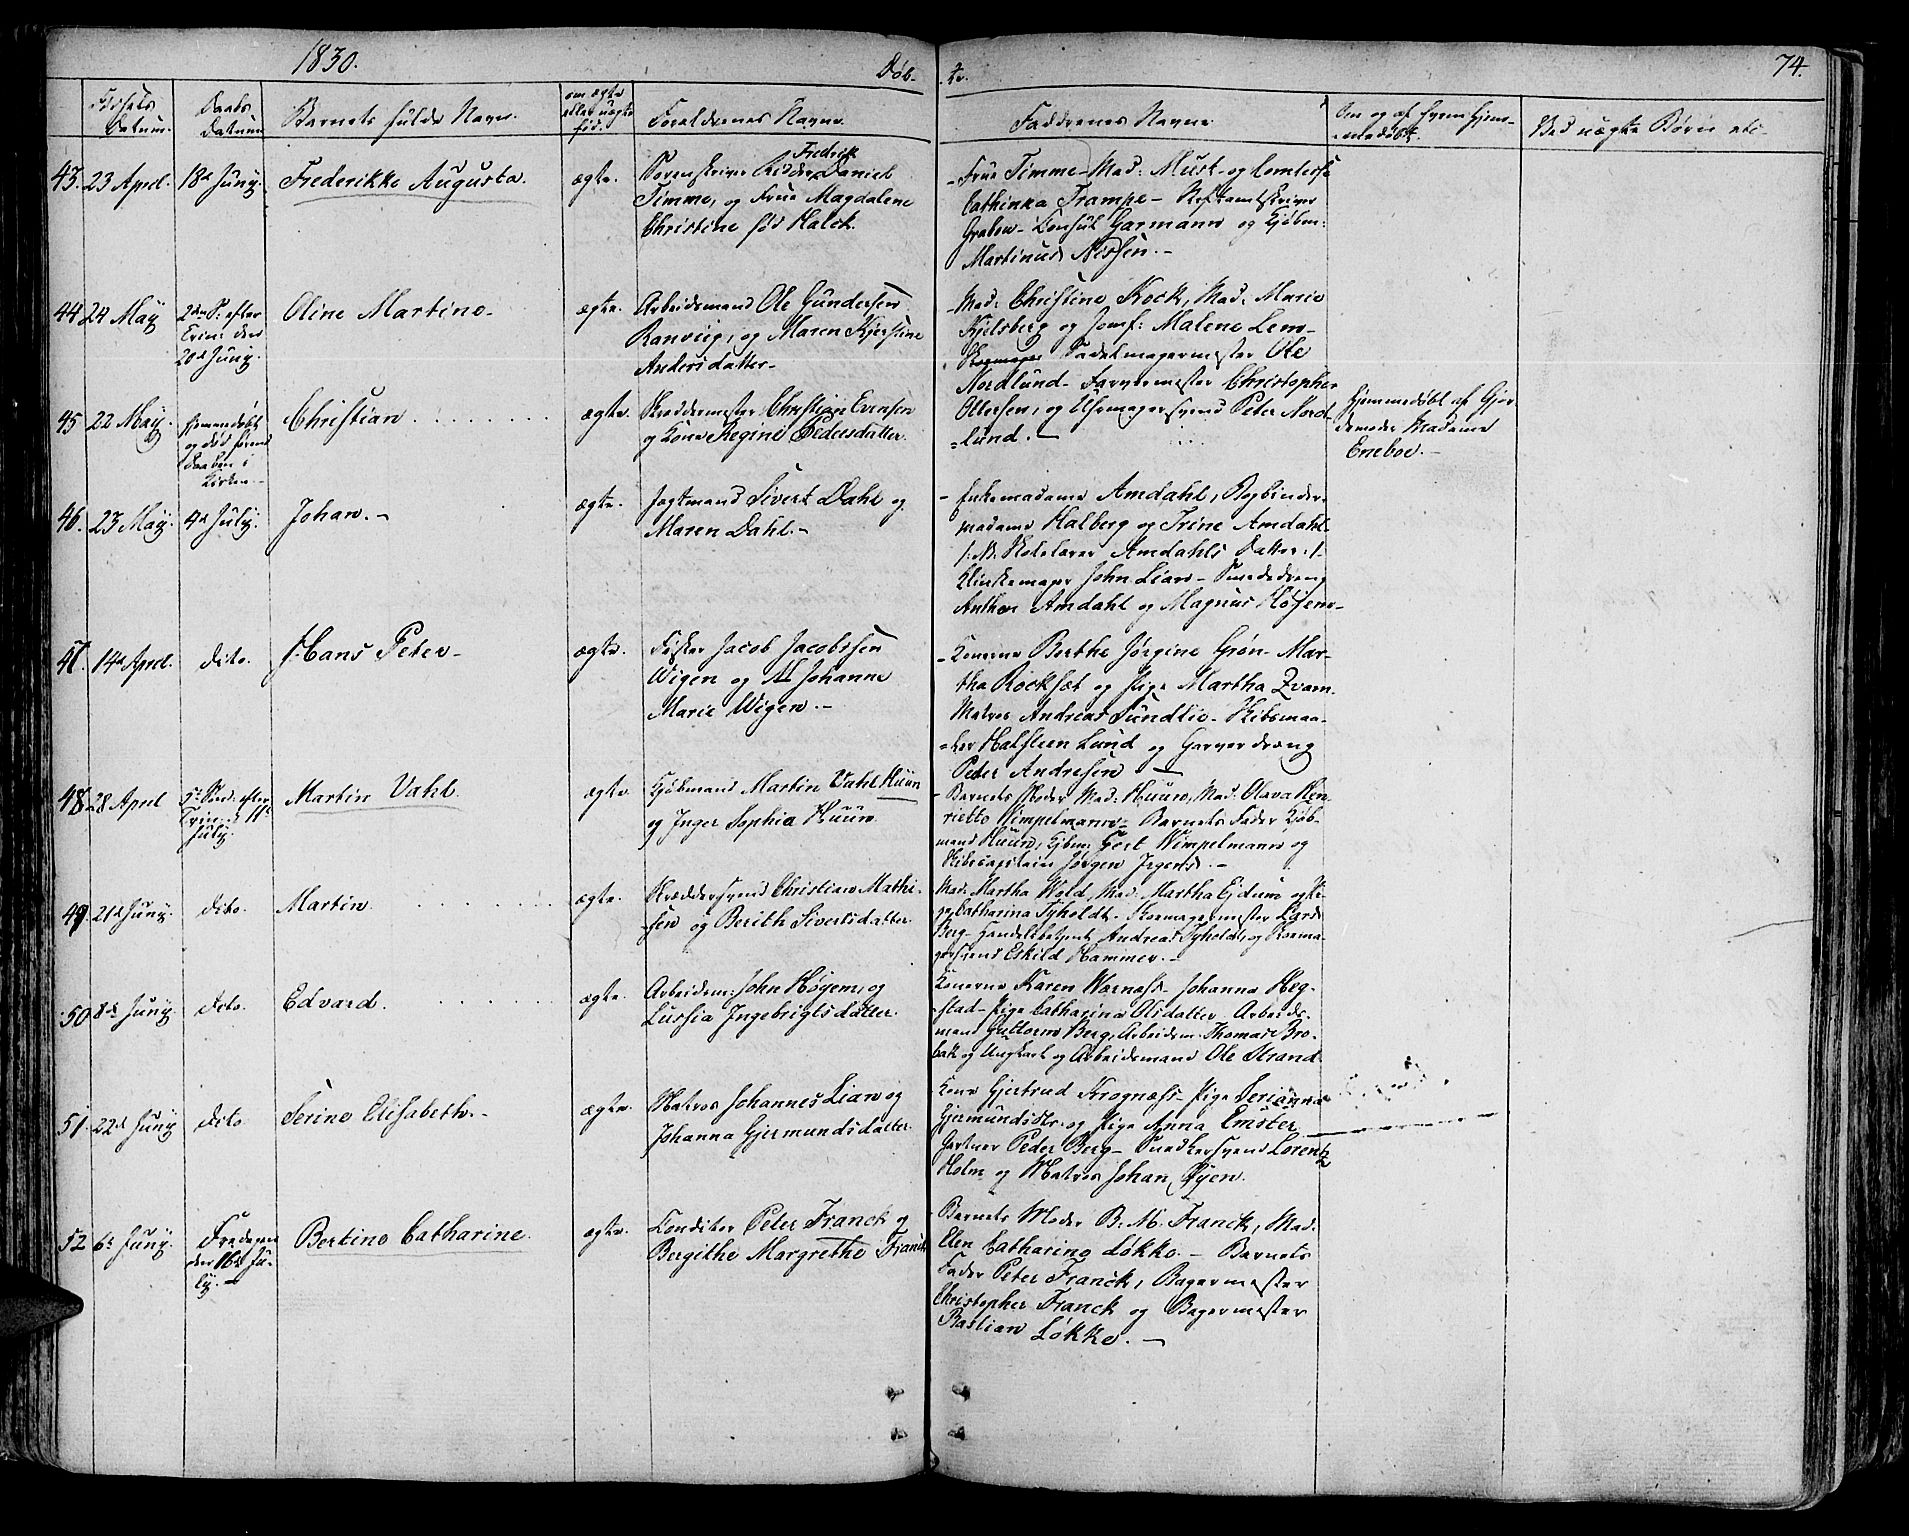 1830.
Døb-
-te.
74.
Fødsels Datum.
Daabs Datum
Barnets fulde Navn.
om ægte eller uægte fød.
Forældrenes Navne
Faddrenes Navne
Om og af hvem Hjem-
-medøbt.
Ved uægte Børn etc-
43. 23 April. 18de Juny. Frederikke Augusta. ægte.
Sorenskriver Ridder Fredrik Daniel
Timme, og Frue Magdalene
Christine fød Halck.
- Frue Timme - Mad: Must - og Comtesse
Cathinka Trampe -
Graben - Consul Garmann og Kjøbm:
Martinus Nissen. -
44. 24 May 2den S: efter
Trin: den
20de Juny.
Oline Martine - ægte.
Arbeidsmand Ole Gundersen
Ranviig, og Maren Kjerstine
Andersdatter -
- Mad: Christine Kock, Mad: Marie
Kjelsberg og Jomf: Malene Lem -
Skomager Sadelmagermester Ole
Nordlund - Farvermester Christopher
Ottersen, og Uhrmagersvend Peter Nord-
-lund. -
45 22 May. Hjemmedøbt
og død førend
Daaben i
Kirken -
Christian. ægte.
Skreddermester Christian Evensen
og Kone Regine Pedersdatter.
Hjemmedøbt af Gjor-
demoder Madame
Eneboe. -
46. 23 May. 4de July. Johan. - ægte.
Jagtmand Sivert Dahl og
Maren Dahl. -
- Enkemadame Amdahl, Bogbinder-
madame Halberg og Trine Amdahl
/: NB. Skolelærer Amdahls Datter :/ -
Klinkemager John Lian - Smededreng
Anthon Amdahl og Magnus Høyem -
47. 14de April. dito. Hans Peter - ægte.
Fisker Jacob Jacobsen
Wigen og Johanne
Marie Wigen. -
- Konerne Berthe Jørgine Grøn - Mar-
tha Rocksæt og Pige Martha Zvam.
Matros Andreas Sundlie - Skibsmaa-
-ler Halsteen Lund og Garverdreng
Peder Andresen -
48 28 April 5te Sønd: efter
Trin: d 11te
July.
Martin Vahl. ægte.
Kjøbmand Martin Vahl Huun
og Inger Sophia Huun
- Barnets Moder Mad: Huun, Mad: Olava Hen-
riette Wimpelmann - Barnets Fader Kjøb-
mand Huun, Kjbm: Gert Wimpelmann og
Skibscapitain Jørgen Jegers. -
49. 21de Juny. dito. Martin. ægte.
Skræddersvend Christian Mathi-
-sen og Berith Sivertsdatter.
Mad: Martha Wold, Mad: Martha Ejdum og Pi-
ge Catharina Tyholdt - Skomagermester Lars
Berg - Handelsbetjent Andreas Tyholdt, og Skoma-
gersvend Eskild Hammer. -
50 8de Juny. dito. Edvard. ægte.
Arbeidsm: John Høyem, og
Lussia Ingebrigtsdatter.
Konerne Karen Warnæss - Johanna Heg-
-stad - Pige Catharina Olsdatter - Arbeids-
mand Guttorm Berg, Arbeidsm. Thomas Bro-
bak og Ungkarl og Arbeidsmand Ole Strand.
51. 22de Juny dito Serine Elisabeth. - ægte.
Matros Johannes Lian og
Johanna Gjermundsdatter.
Kone Gjertrud Krognæss - Pige Serianna
Gjermundsdtr: og Pige Anna Emster
Gartner Peder Berg - Snedkersvend Lorentz
Holm og Matros Johan Øyen.
52 6te Juny. Fredagen
den 16de Ju-
ly. -
Bertine Catharine. ægte.
Conditor Peter Franck og
Bergithe Margrethe Franck
- Barnets Moder B. M. Franck, Mad:
Elen Catharina Løkke. - Barnets
Fader Peter Franck, Bagermester
Christopher Franck og Bagermester
Bastian Løkke. -